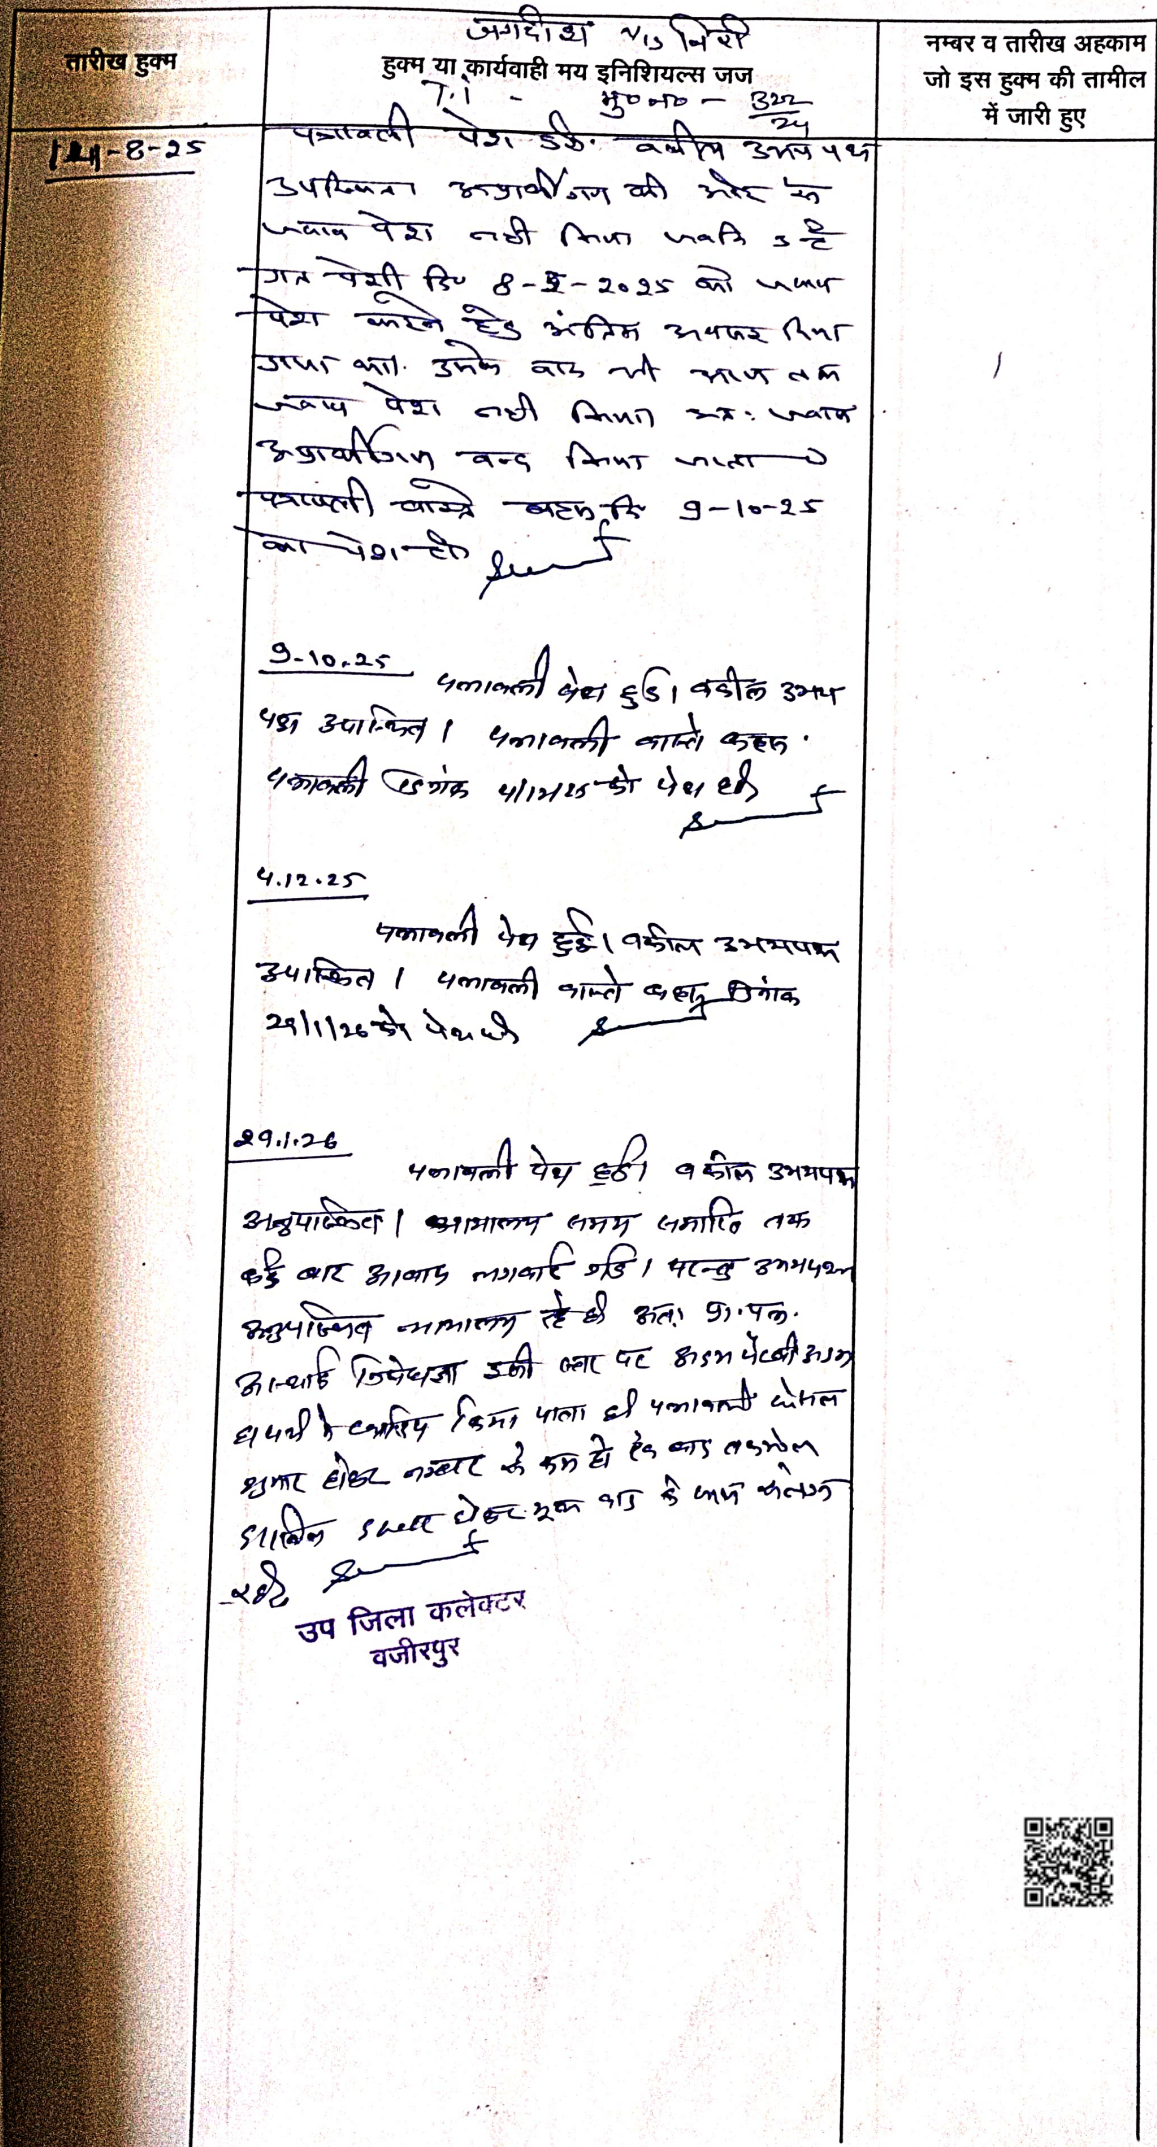 जगदीश v/s गिर्री
तारीख हुक्म
हुक्म या कार्यवाही मय इनिशियल्स जज
नम्बर व तारीख अहकाम
जो इस हुक्म की तामील
में जारी हुए
T.i - मु०न० - 322/24
14-8-25
पत्रावली पेश हुई. वकील उभय पक्ष
उपस्थित। अप्रार्थीगण की ओर से
जवाब पेश नहीं किया जबकि उन्हें
गत पेशी दि० 8-5-2025 को जवाब
पेश करने हेतु अंतिम अवसर दिया
गया था. उसके बाद भी आज तक
जवाब पेश नहीं किया अत: जवाब
अप्रार्थीगण बन्द किया जाता
पत्रावली वास्ते बहस दि 9-10-25
को पेश हो
9-10.25
पत्रावली पेश हुई। वकील उभय
पक्ष उपस्थित। पत्रावली वास्ते बहस.
पत्रावली दिनांक 4/12/25 को पेश हो
4.12.25
पत्रावली पेश हुई। वकील उभयपक्ष
उपस्थित। पत्रावली वास्ते बहस दिनांक
29/1/26 को पेश हो
29.1.26
पत्रावली पेश हुई। वकील उभयपक्ष
अनुपस्थित। न्यायालय समय समाप्ति तक
कई बार आवाज लगवाई गई। परन्तु उभयपक्ष
अनुपस्थित न्यायालय रहे है अत: प्रा.पत्र.
अस्थाई निषेधाज्ञा इसी स्तर पर अदम पैरवी अदम
हाजरी में खारिज किया जाता है पत्रावली फैसल
शुमार होकर नम्बर से कम हो बाद तकमील
दाखिल दफ्तर होकर मूल वाद के साथ संलग्न
रहे
उप जिला कलेक्टर
वजीरपुर